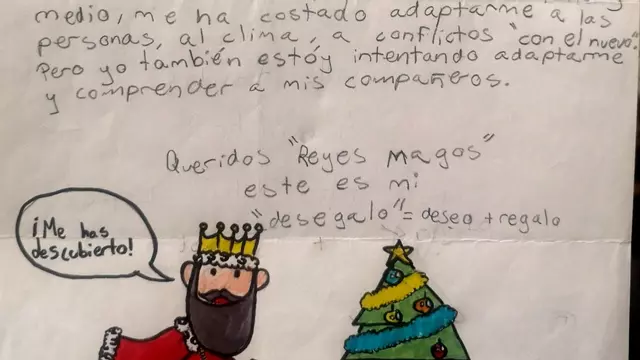 medio, me ha costado adaptarme a las
personas, al clima, a conflictos "con el nuevo"
Pero yo también estóy intentando adaptarme
y comprender a mis compañeros.
Queridos "Reyes magos"
este es mi
"desegalo" = deseo + regalo
¡Me has
descubierto!